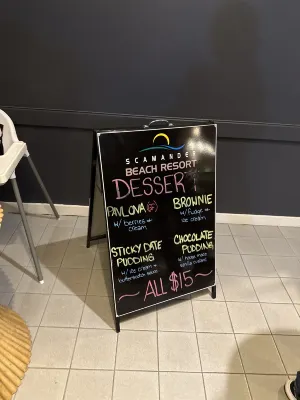 SCAMANDER
BEACH RESORT
DESSERT
PAVLOVA (GF)
w/ berries +
cream
BROWNIE
w/ fudge +
ice cream
STICKY DATE
PUDDING
w/ ice cream +
butterscotch sauce
CHOCOLATE
PUDDING
w/
vanilla custard
~ ALL $15 ~